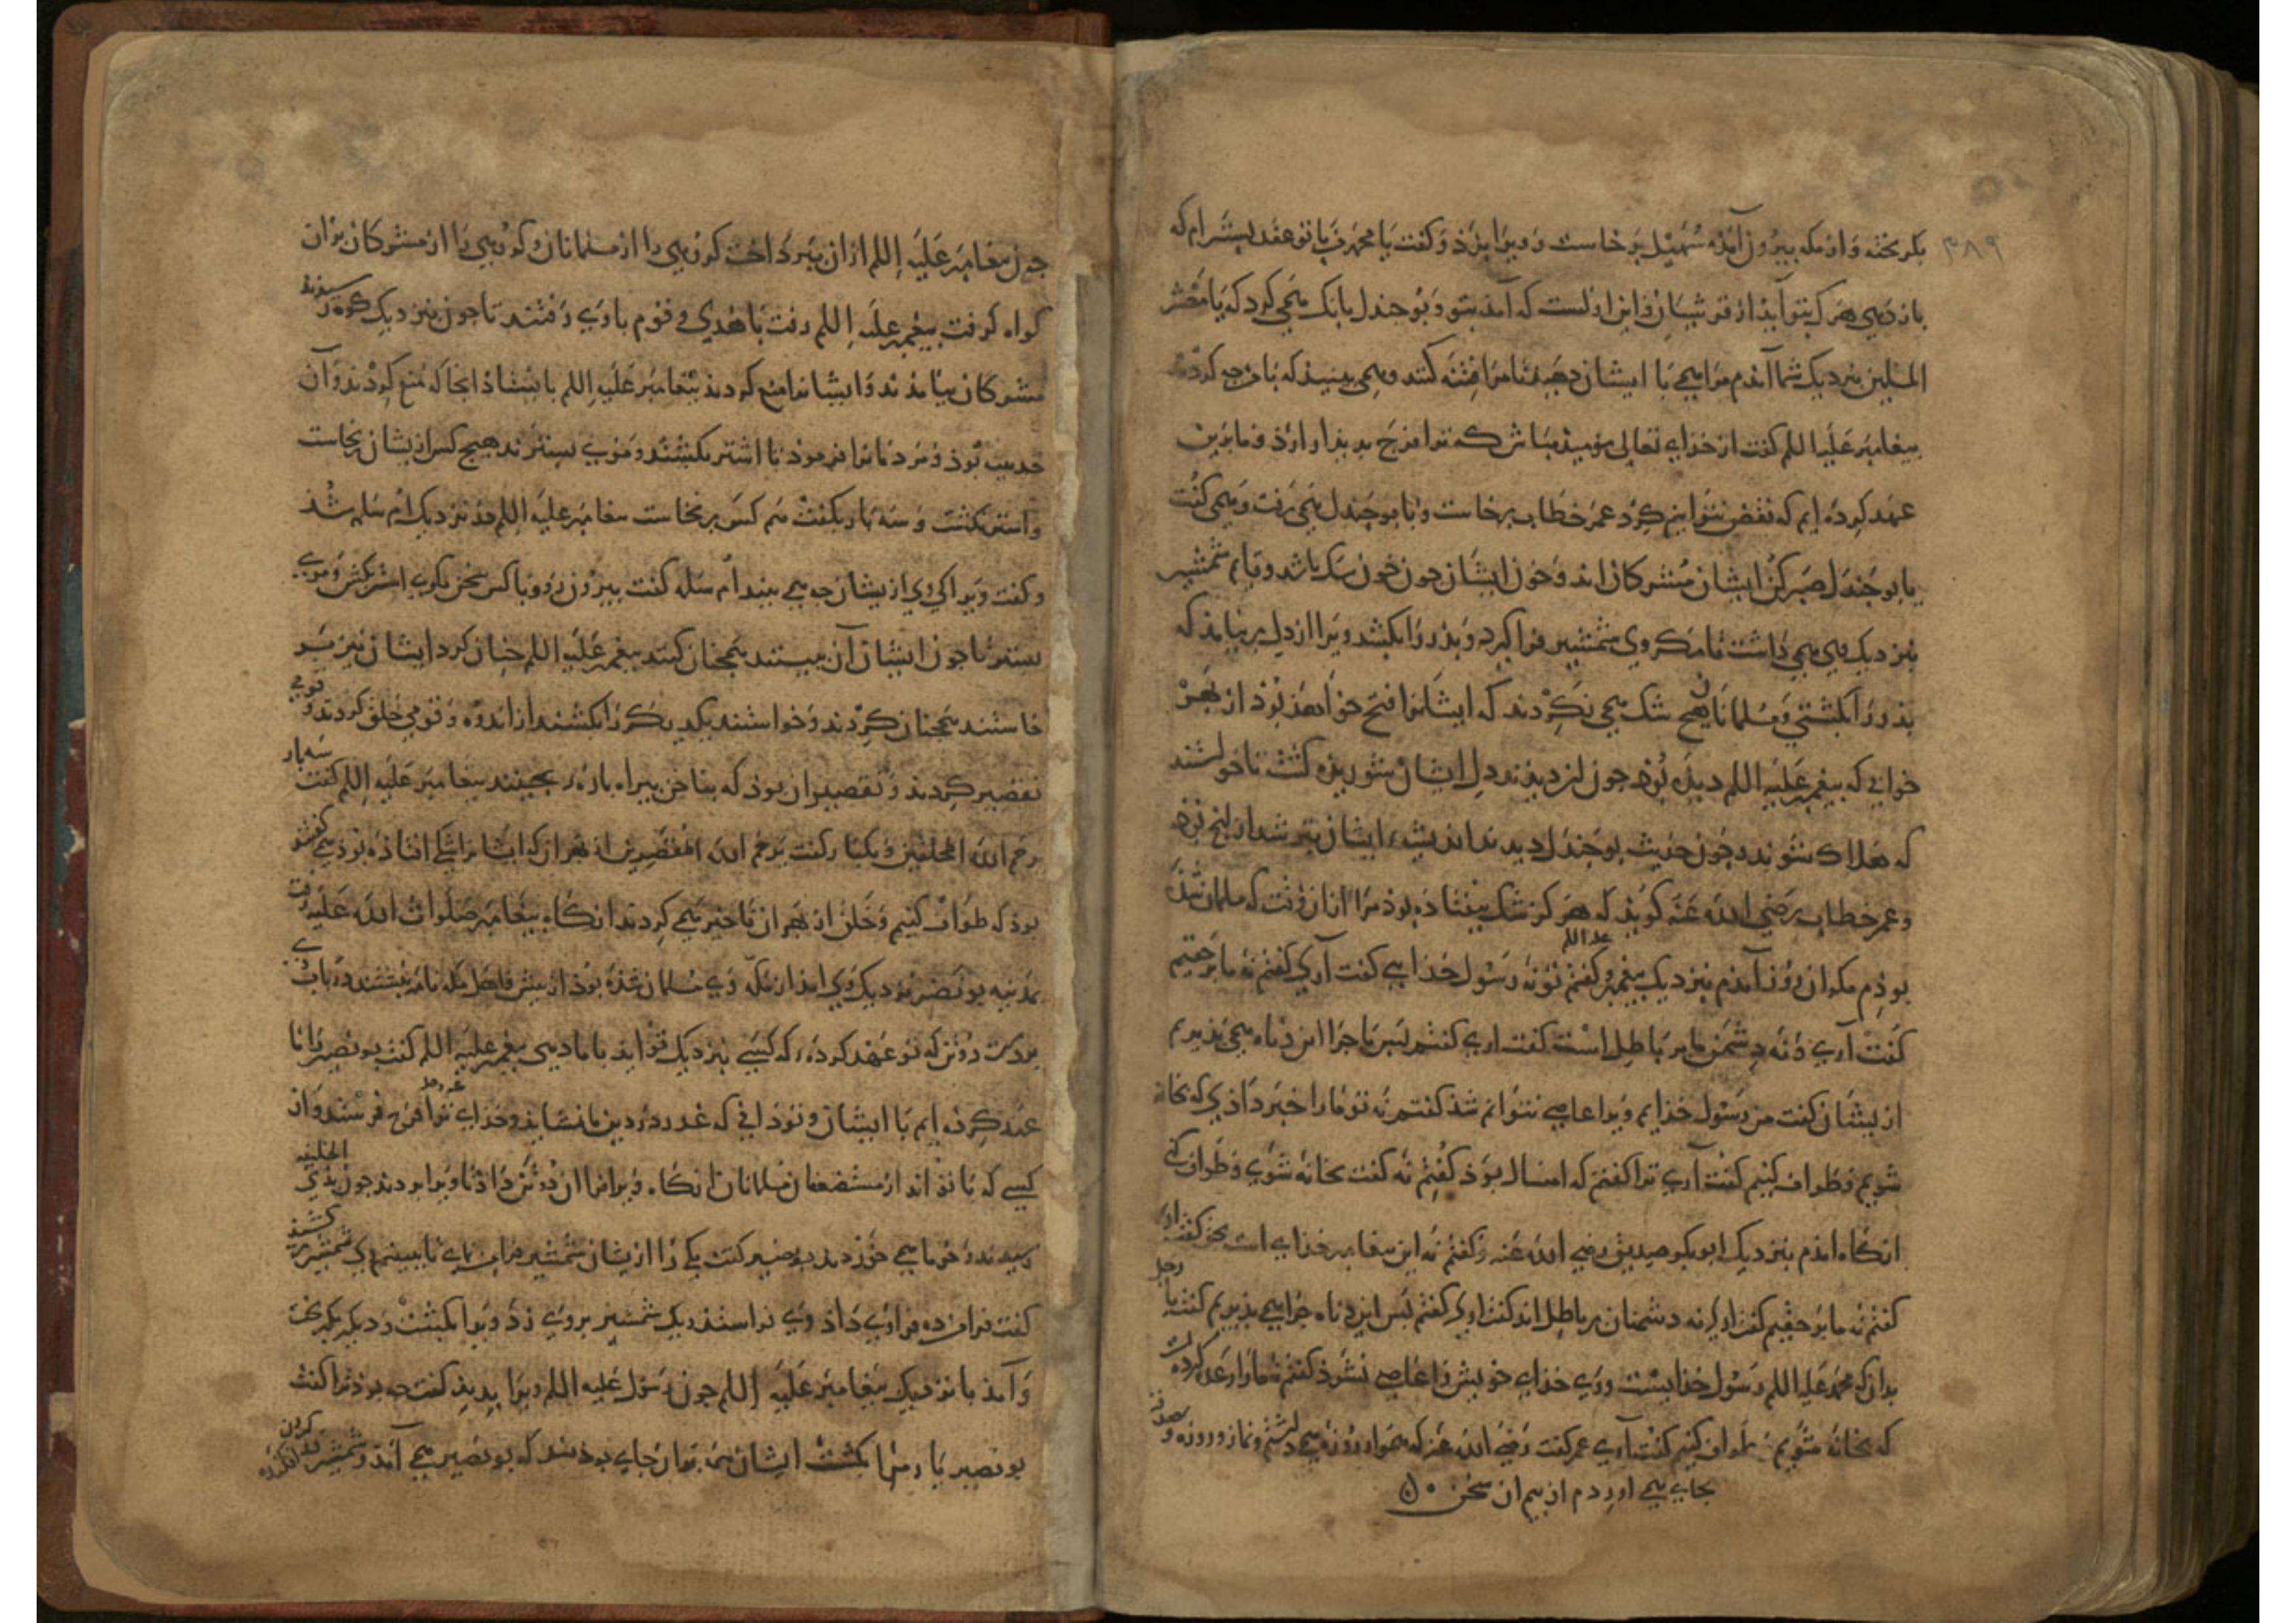 ۳۸۹
بگریخته و از مکه بیرون آمذه سهیل برخاست و ویرا بزذ و گفت یا محمد من با تو عقد بستم که
باز دهی هرک بتو آیذ از قرشیان و این اولست که آمذ بتو و بوجندل بانک همی کرد که یا معشر
المسلمین بنزدیک شما آمذم مرا همی با ایشان دهید تا مرا فتنه کنند و همی بینید که با من چه کردند
پیغامبر علیه السلم گفت از خذای تعالی نومیذ مباش که ترا فرج پدیذار آرذ و ما بدین
عهد کرده ایم که نقض نتوانیم کرد عمر خطاب برخاست و با بوجندل همی رفت و همی گفت
یا بوجندل صبر کن ایشان مشرکان اند و خون ایشان چون خون سک باشد و قایم شمشیر
بنزدیک وی همی داشت تا مکر وی شمشیر فرا گیرد و پذر را بکشد ویرا از دل برنیامذ که
پذر را بکشتی و مسلمانان هیچ شک همی نکردند که ایشانرا فتح خواهذ بوذ از بهر
خوابی که پیغمبر علیه السلم دیذه بوذ چون آن دیذند دل ایشان شوریذه کشت تا خواستند
که هلاک شوند و چون حدیث بوجندل دیدند اندیشه ایشان بتر شد از آنچ بوذ
و عمر خطاب رضی الله عنه کویذ که هرکز شک نیفتاذه بوذ مرا از آن وقت که مسلمان شذه
بوذم مکر آن روز آمذم بنزدیک پیغمبر علیه السلم و گفتم تو نه رسول خذایی گفت آری گفتم نه ما بر حقیم
گفت آری و نه دشمن ما بر باطل است گفت اری گفتم پس ما چرا این دناه همی پذیریم
از یشان گفت من رسول خذایم ویرا عاصی نتوانم شذ گفتم نه تو مارا خبر داذی که بخانه
شویم و طواف کنیم گفت آری ترا گفتم که امسال بوذ گفتم نه گفت بخانه شوی و طواف کنی
انکاه امذم بنزدیک ابوبکر صدیق رضی الله عنه و گفتم نه این پیغامبر خذای است بحق گفت اری
گفتم نه ما بر حقیم گفت اری نه دشمنان بر باطل اند گفت اری گفتم پس این دناه چرا همی پذیریم گفت یا رجل
بدان که محمد علیه السلم رسول خذایست و وی خذای خویش را عاصی نشوذ گفتم نه مارا وعده کرده است
که بخانه شویم و طواف کنیم گفت آری عمر گفت رضی الله عنه که همواره روزه می داشتم و نماز و روزه و صدقه
بجای همی اوردم از بیم آن سخن
چون پیغامبر علیه السلم از ان بپرداخت کروهی را از مسلمانان و کروهی را از مشرکان بران
کواه کرفت پیغمبر علیه السلم رفت با هدی و قوم با وی رفتند تا چون بنزدیک کوه رسیدند
مشرکان بیامذند و ایشانرا منع کردند پیغامبر علیه السلم بایستاذ انجا که منع کردند و آن
حدیبیه بوذ و مردمانرا فرموذ تا اشتر بکشند و موی بسترند هیچ کس از یشان برنخاست
و اشتر نکشت و سه بار بگفت هم کس برنخاست پیغامبر علیه السلم نزدیک ام سلمه شذ
و گفت ویرا کی وی از یشان چه همی بیند ام سلمه گفت بیرون رو و با کس سخن مکوی اشتر بکش و موی
بستر تا چون ایشان آن ببینند همچنان کنند پیغمبر علیه السلم چنان کرد ایشان نیز بر
خاستند همچنان کردند و خواستند یکدیکر را بکشند از اندوه و قومی حلق کردند و قومی
تقصیر کردند و تقصیر ان بوذ که بناخن پیراه پاره بچینند پیغامبر علیه السلم گفت سه بار
رحم الله المحلقین و یکبار گفت یرحم الله المقصرین از بهر آن که ایشانرا شکی افتاذه بوذ می گفتند
بوذ که طواف کنیم و حلق از بهر ان تاخیر همی کردند انکاه پیغامبر صلوات الله علیه رفت
بمدینه بو نصیر نزدیک وی امذ از مکه وی مسلمان شذه بوذ از پیش اهل مکه نامه نبشتند در باب وی
بدست دو تن که تو عهد کرده که کسی بنزدیک تو ایذ با ما دهی پیغمبر علیه السلم گفت بو نصیر را ما
عهد کرده ایم با ایشان و تو دانی که غدر در دین ما نشایذ و خذای عز و جل ترا فرج فرستد و آن
کسی که با تو اند از مستضعفان مسلمانان انکاه ویرا فرا ان دو تن داذ تا ویرا ببردند چون بذی الحلیفه
رسیدند و خرما همی خوردند بو نصیر گفت یکی را از یشان شمشیر فرا من نمای تا ببینم وی شمشیر کشیذ
گفت فرا من ده فرا وی داذ وی فراستد و یک شمشیر بر وی زذ ویرا بکشت و دیکر بکریخت
و آمذ با نزدیک پیغامبر علیه السلم چون رسول علیه السلم ویرا بدیذ گفت چه بوذ ترا گفت
بو نصیر یار مرا بکشت ایشان هم بران جای بوذند که بو نصیر همی آمذ و شمشیر در کردن افکنده